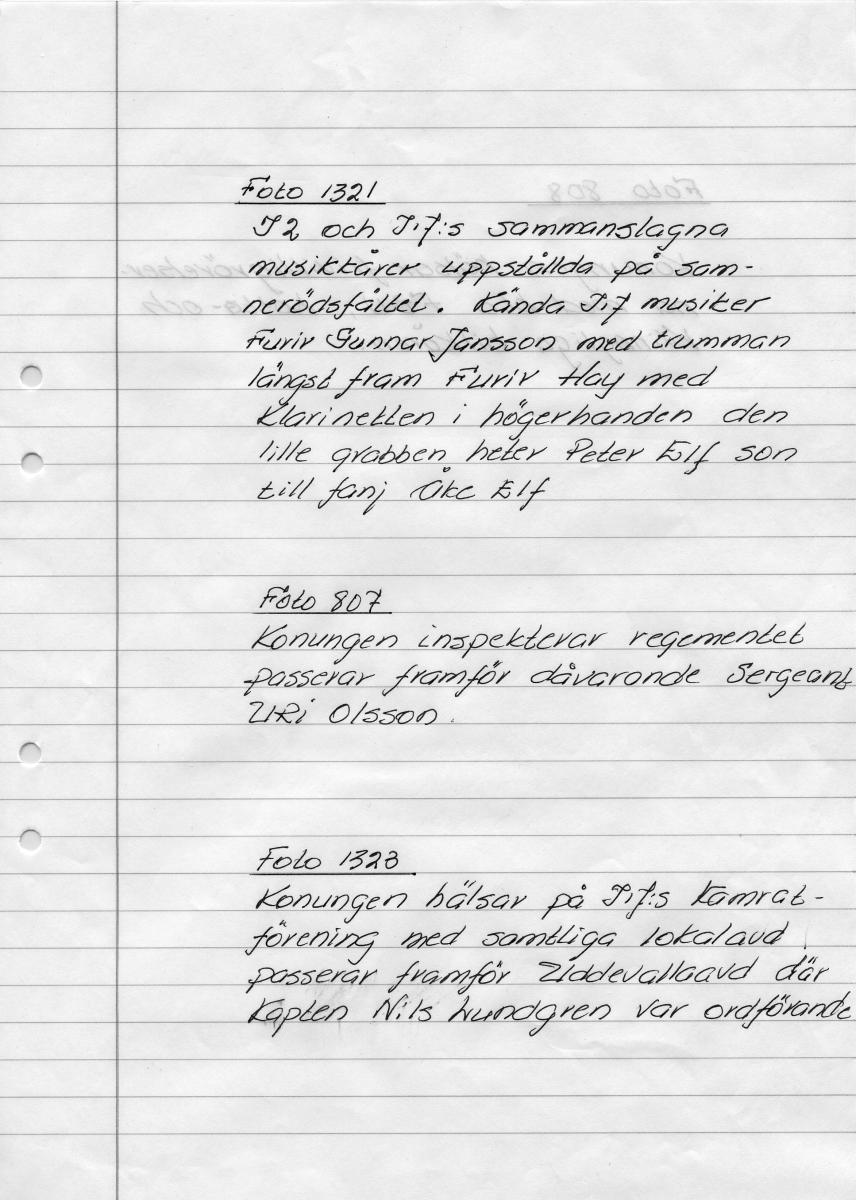 Foto 1321
I2 och I17:s sammanslagna
musikkårer uppställda på sam-
nerödsfältet. Kända I17 musiker
Furir Gunnar Jansson med trumman
längst fram Furir Hay med
Klarinetten i högerhanden den
lille grabben heter Peter Elf son
till fanj Åke Elf
Foto 807
Konungen inspekterar regementet
passerar framför dåvarande Sergeant
Olsson.
Foto 1323
Konungen hälsar på I17:s Kamrat-
förening med samtliga lokalavd
passerar framför Uddevallaavd där
Kapten Nils Lundgren var ordförande